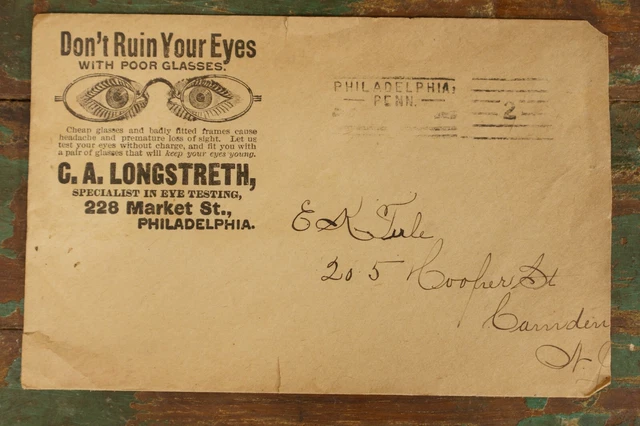 Don't Ruin Your Eyes
WITH POOR GLASSES.
Cheap glasses and badly fitted frames cause
headache and premature loss of sight. Let us
test your eyes without charge, and fit you with
a pair of glasses that will keep your eyes young.
C. A. LONGSTRETH,
SPECIALIST IN EYE TESTING,
228 Market St.,
PHILADELPHIA.
PHILADELPHIA,
PENN.
2
E K
205 Cooper St
Camden
N. J